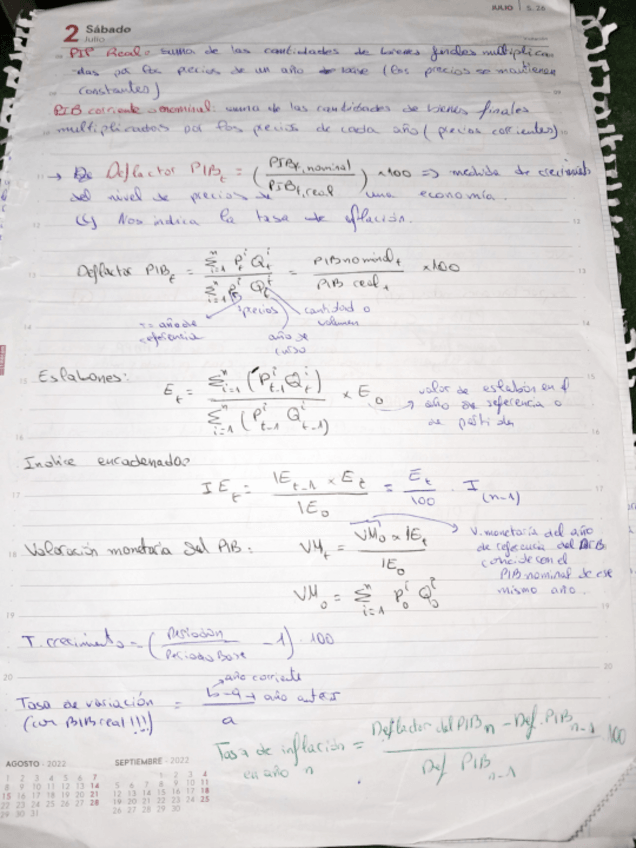 JULIO | S. 26
2 Sábado
Julio
PIB Real: suma de las cantidades de bienes finales multiplica-
das por los precios de un año base (los precios se mantienen
constantes)
PIB corriente o nominal: suma de las cantidades de bienes finales
multiplicados por los precios de cada año (precios corrientes)
→ Deflactor PIB_t = (PIB_t, nominal / PIB_t, real) × 100 => medida de
del nivel de precios de una economía.
Nos indica la tasa de inflación.
Deflactor PIB_t = Σ_{i=1}^n P_t^i Q_t^i / Σ_{i=1}^n P^i Q_t^i = PIB nominal_t / PIB real_t × 100
precios cantidad o
volumen
año de
referencia
año en
curso
Eslabones: E_t = Σ_{i=1}^n (P_{t-1}^i Q_t^i) / Σ_{i=1}^n (P_{t-1}^i Q_{t-1}^i) × E_0
valor de eslabón en el
año de referencia o
de partida
Indice encadenado:
IE_t = IE_{t-1} × E_t / IE_0 = E_t / 100 · I_(n-1)
Valoración monetaria del PIB: VM_t = VM_0 × IE_t / IE_0
V. monetaria del año
de referencia del PIB
coincide con el
PIB nominal de ese
mismo año.
VM_0 = Σ_{i=1}^n P_0^i Q_0^i
T. crecimiento = (Periodo n / Periodo Base - 1) · 100
Tasa de variación = b - a / a
(con PIB real!!!)
año corriente
año anterior
Tasa de inflación = Deflactor del PIB_n - Def. PIB_{n-1} / Def PIB_{n-1} · 100
en año n
AGOSTO - 2022
1 2 3 4 5 6 7
8 9 10 11 12 13 14
15 16 17 18 19 20 21
22 23 24 25 26 27 28
29 30 31
SEPTIEMBRE - 2022
1 2 3 4
5 6 7 8 9 10 11
12 13 14 15 16 17 18
19 20 21 22 23 24 25
26 27 28 29 30